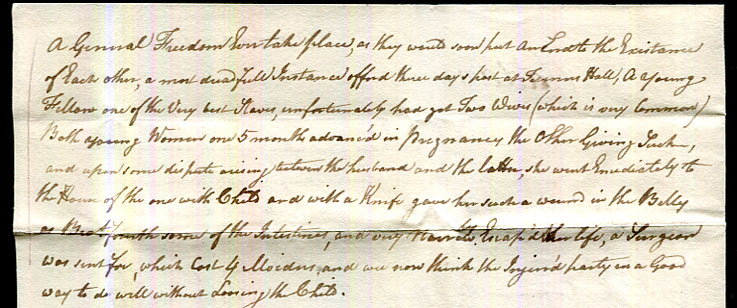 A General Freedom Ever take place, as they would soon put An End to the Existance
of Each other, a most dreadfull Instance offerd three days past at Hall, A young
Fellow one of the Very best Slaves, unfortunately had got Two Wives (which is very Common)
Both young Women one 5 months advanc'd in Pregnancy the Other Giving Suck,
and upon some dispute arising between the husband and the latter, she went Emediately to
the House of the one with Child and with a Knife gave her such a wound in the Belly
as Brot fourth some of the Intestines, and very Escap'd her life, a Surgeon
was sent for, which Cost 4 Moidus, and we now think the Injur'd party in a Good
way to do well without Loosing the Child.